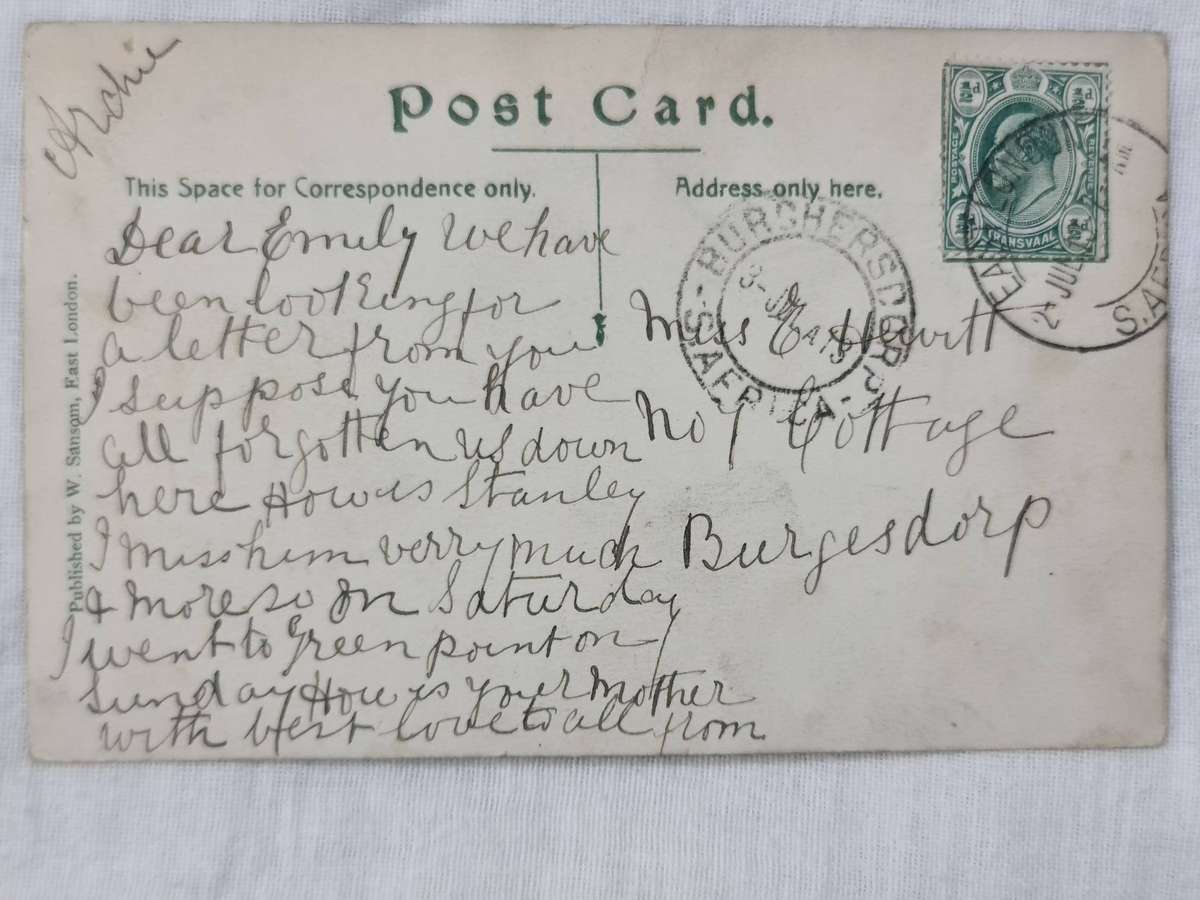 Archie
Post Card.
This Space for Correspondence only.
Address only here.
Dear Emily We have
been looking for
a letter from you
I suppose you have
all forgotten us down
here How is Stanley
I miss him verry much
& more so on Saturday
I went to Green point on
Sunday How is your Mother
with best love to all from
Miss E Hewitt
No 1 Cottage
Burgesdorp
Published by W. Sansom, East London.
BURGHERSDORP
S. AFRICA
½d ½d
POSTAGE
TRANSVAAL
½d ½d
JUL
S. AFRICA